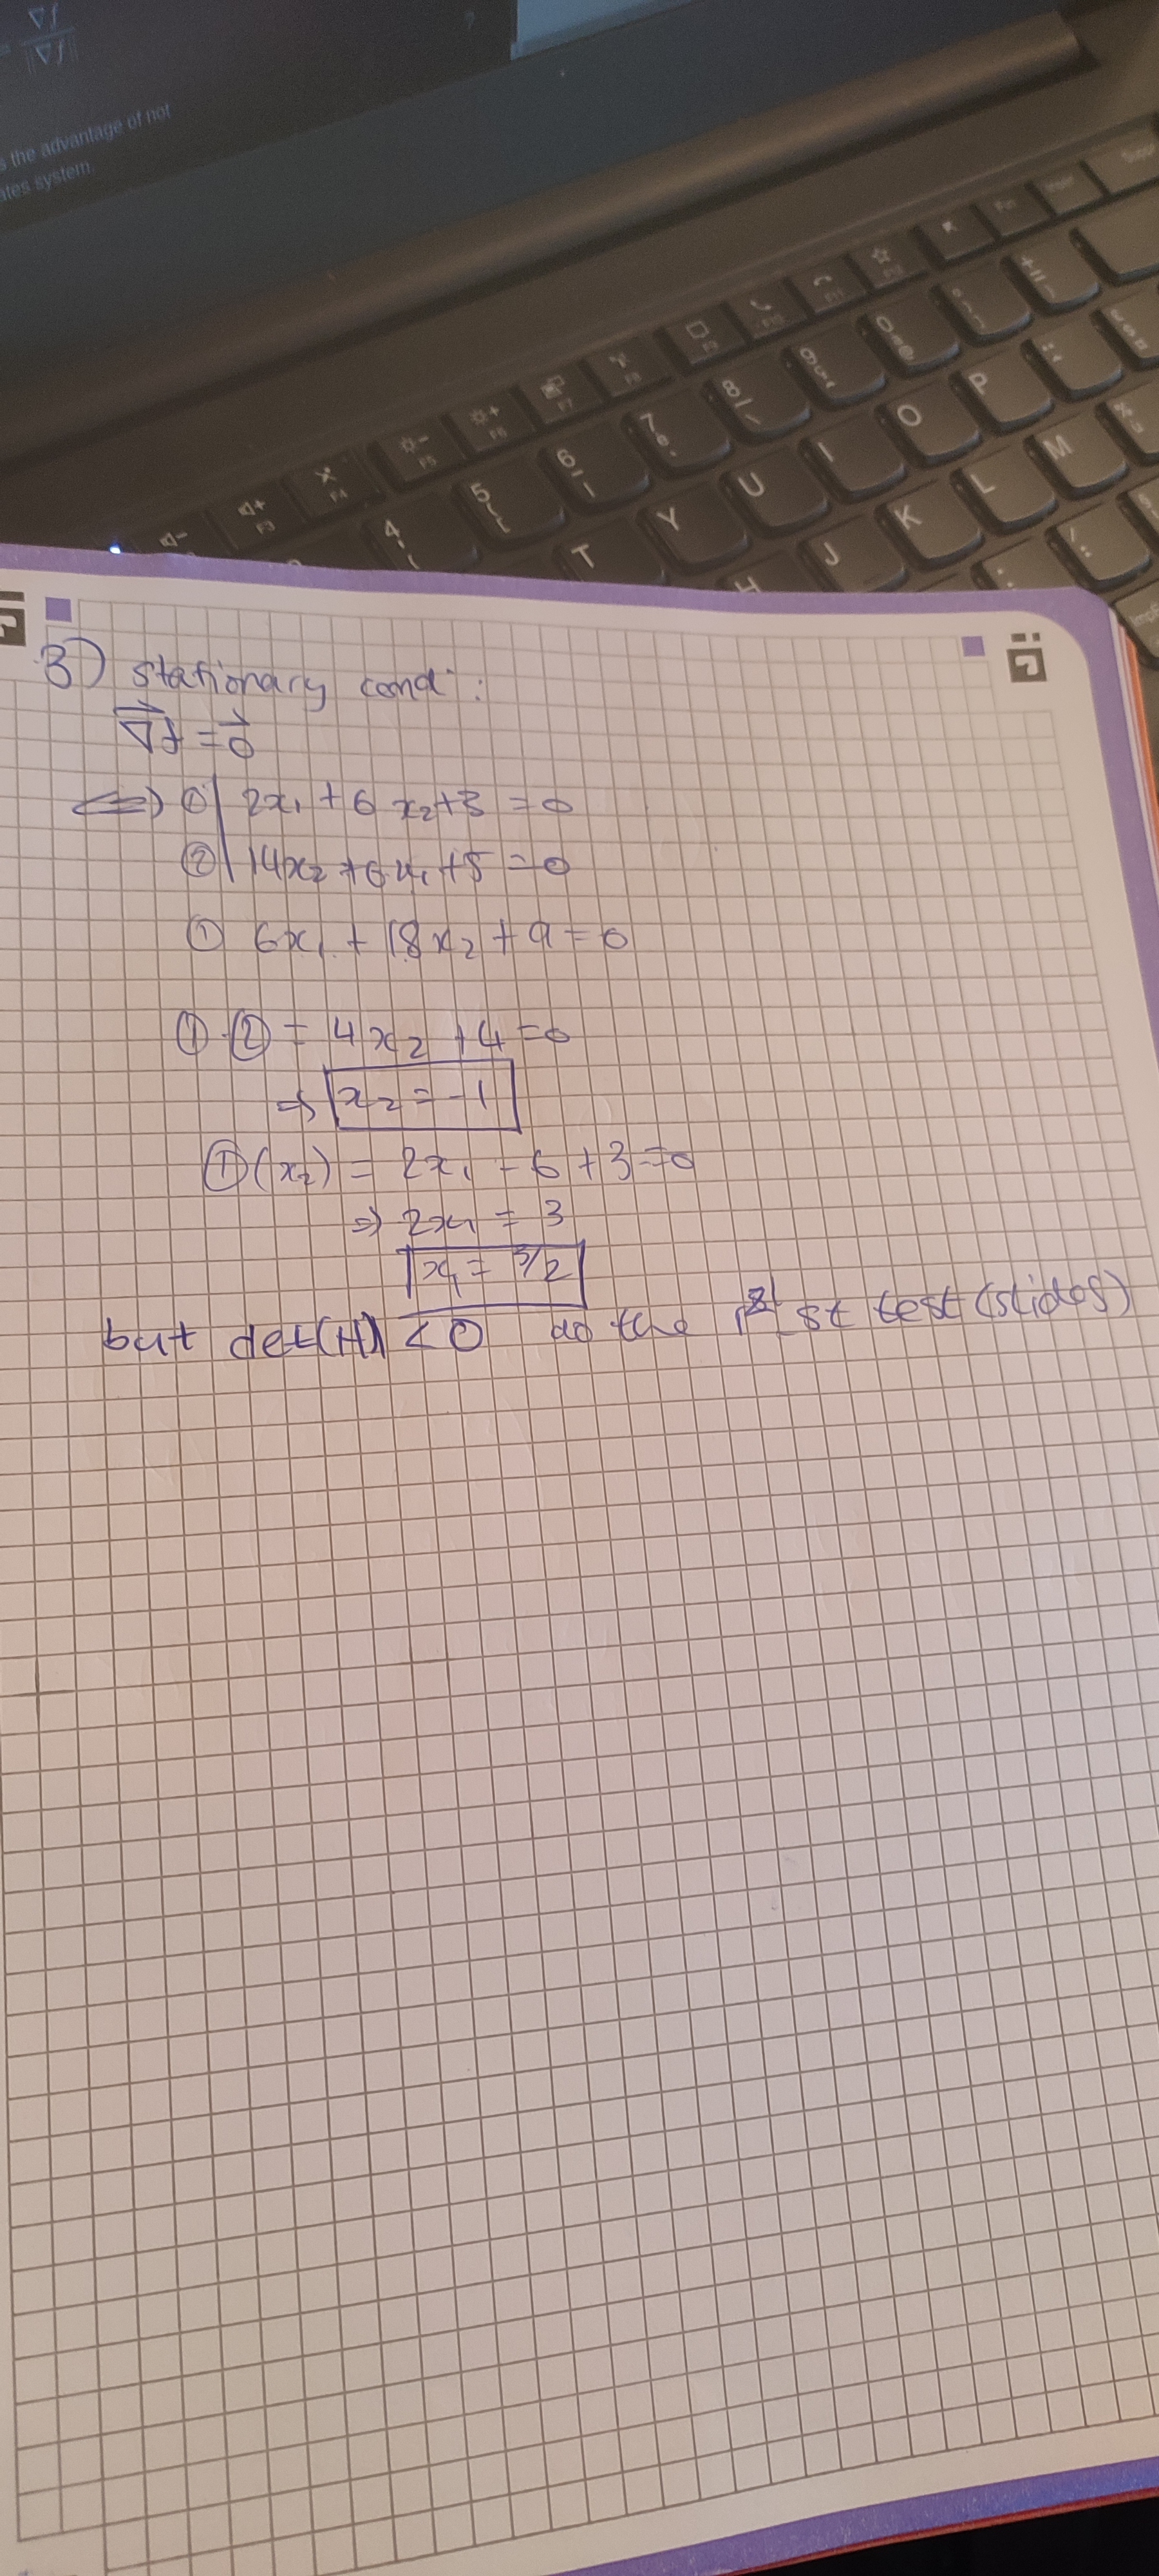 ∇f
‖∇f‖
s the advantage of not
ates system.
F3
F4
F5
F6
F7
F8
F9
F10
F11
F12
4
5
6
7
8
9
0
T Y U I O P
H J K L M
3) stationary cond :
∇f = 0
⇔ ① 2x₁ + 6 x₂ + 3 = 0
② 14x₂ + 6x₁ + 5 = 0
① 6x₁ + 18x₂ + 9 = 0
① - ② = 4x₂ + 4 = 0
⇒ x₂ = -1
① (x₂) = 2x₁ - 6 + 3 = 0
⇒ 2x₁ = 3
x₁ = 3/2
but det(H) < 0 do the 1 st test (slides)